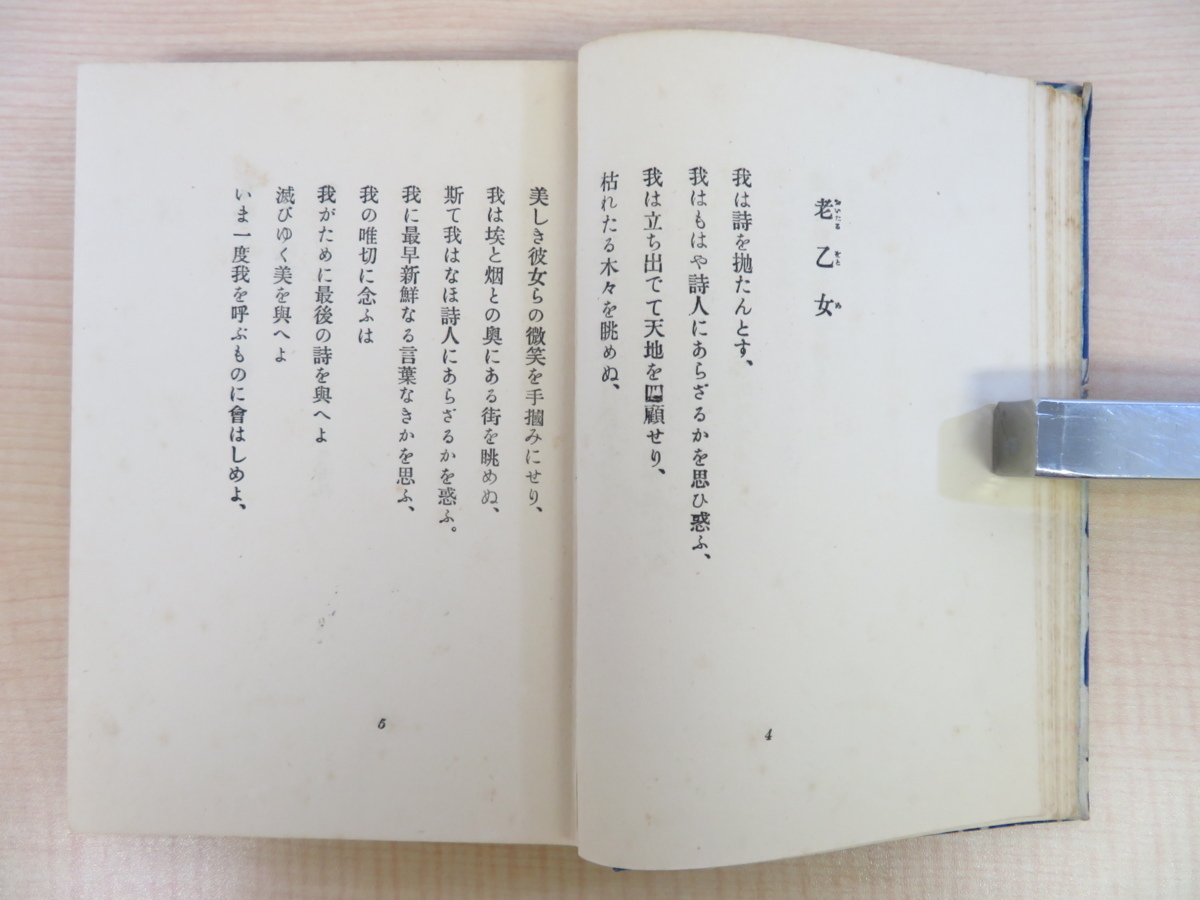 老乙女
我は詩を抛たんとす、
我はもはや詩人にあらざるかを思ひ惑ふ、
我は立ち出でて天地を四顧せり、
枯れたる木々を眺めぬ、
4
美しき彼女らの微笑を手摑みにせり、
我は埃と烟との奥にある街を眺めぬ、
斯て我はなほ詩人にあらざるかを惑ふ。
我に最早新鮮なる言葉なきかを思ふ、
我の唯切に念ふは
我がために最後の詩を與へよ
滅びゆく美を與へよ
いま一度我を呼ぶものに會はしめよ、
5